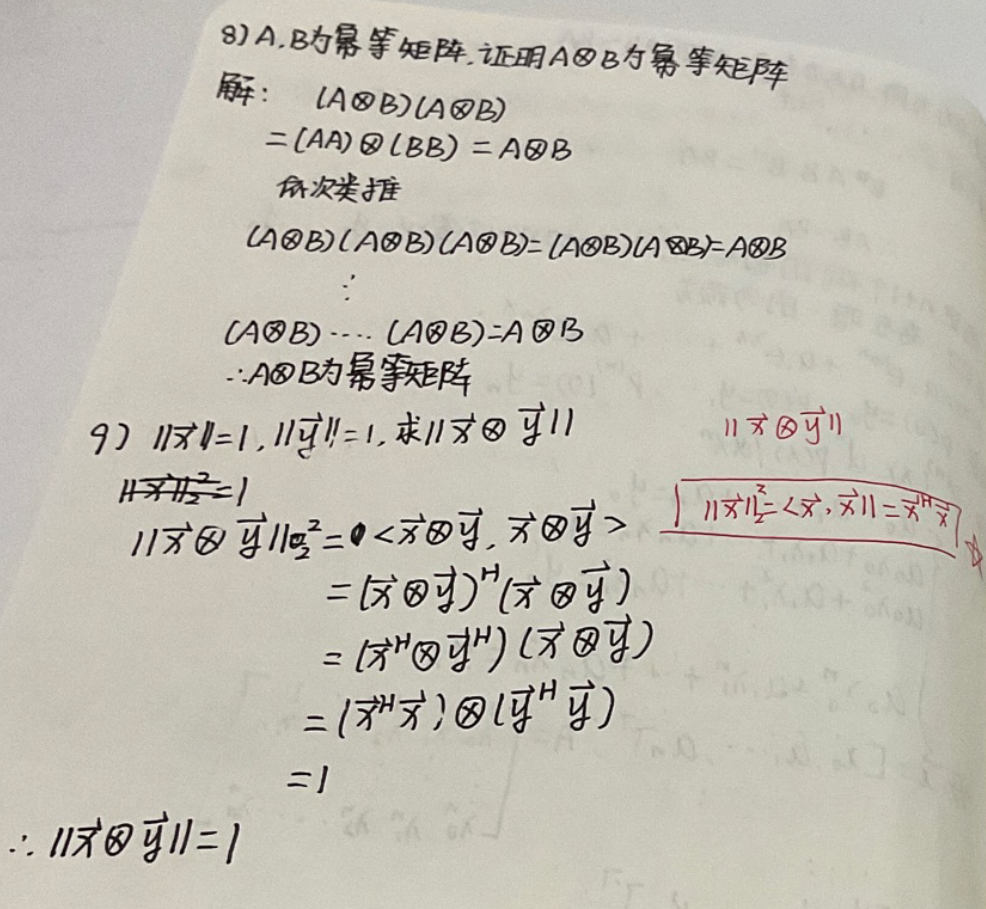 8) A,B为幂等矩阵,证明A⊗B为幂等矩阵
解: (A⊗B)(A⊗B)
=(AA)⊗(BB)=A⊗B
依次类推
(A⊗B)(A⊗B)(A⊗B)=(A⊗B)(A⊗B)=A⊗B
⋮
(A⊗B)····(A⊗B)=A⊗B
∴A⊗B为幂等矩阵
9) ||x⃗||=1, ||y⃗||=1, 求||x⃗⊗y⃗||
||x⃗⊗y⃗||
||x⃗||₂²=1
||x⃗⊗y⃗||₂²=<x⃗⊗y⃗, x⃗⊗y⃗>
||x⃗||₂²=<x⃗,x⃗||=x⃗ᴴx⃗
=(x⃗⊗y⃗)ᴴ(x⃗⊗y⃗)
=(x⃗ᴴ⊗y⃗ᴴ)(x⃗⊗y⃗)
=(x⃗ᴴx⃗)⊗(y⃗ᴴy⃗)
=1
∴||x⃗⊗y⃗||=1